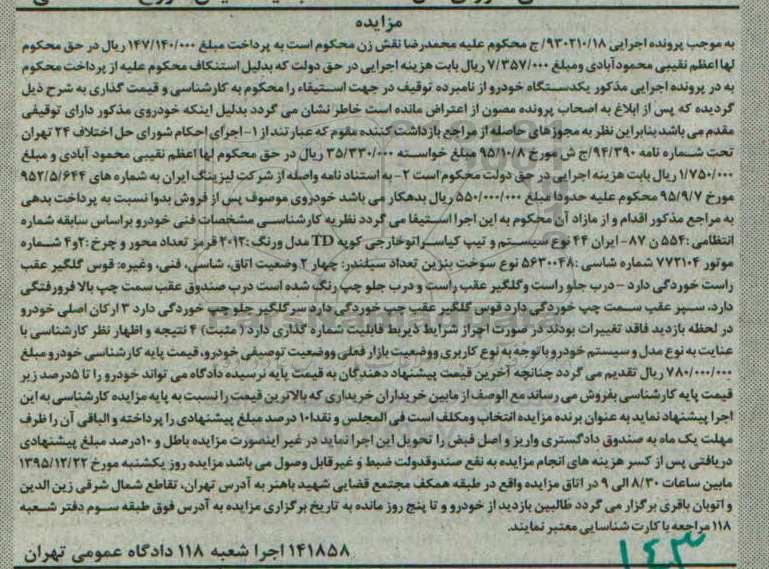 مزایده
به موجب پرونده اجرایی ۹۳۰۲۱۰/۱۸/ ج محکوم علیه محمدرضا نقش زن محکوم است به پرداخت مبلغ ۱۴۷/۱۴۰/۰۰۰ ریال در حق محکوم
لها اعظم نقیبی محمودآبادی ومبلغ ۷/۳۵۷/۰۰۰ ریال بابت هزینه اجرایی در حق دولت که بدلیل استنکاف محکوم علیه از پرداخت محکوم
به در پرونده اجرایی مذکور یکدستگاه خودرو از نامبرده توقیف در جهت استیفاء را محکوم به کارشناسی و قیمت گذاری به شرح ذیل
گردیده که پس از ابلاغ به اصحاب پرونده مصون از اعتراض مانده است خاطر نشان می گردد بدلیل اینکه خودروی مذکور دارای توقیفی
مقدم می باشد بنابراین نظر به مجوزهای حاصله از مراجع بازداشت کننده مقوم که عبارتند از ۱- اجرای احکام شورای حل اختلاف ۲۴ تهران
تحت شماره نامه ۹۴/۳۹۰/ج ش مورخ ۹۵/۱۰/۸ مبلغ خواسته ۳۵/۳۳۰/۰۰۰ ریال در حق محکوم لها اعظم نقیبی محمود آبادی و مبلغ
۱/۷۵۰/۰۰۰ ریال بابت هزینه اجرایی در حق دولت محکوم است ۲- به استناد نامه واصله از شرکت لیزینگ ایران به شماره های ۹۵۲/۵/۶۴۴
مورخ ۹۵/۹/۷ محکوم علیه حدودا مبلغ ۵۵۰/۰۰۰/۰۰۰ ریال بدهکار می باشد خودروی موصوف پس از فروش بدوا نسبت به پرداخت بدهی
به مراجع مذکور اقدام و از مازاد آن محکوم به این اجرا استیفا می گردد نظریه کارشناسی مشخصات فنی خودرو براساس سابقه شماره
انتظامی :۵۵۴ ن ۸۷- ایران ۴۴ نوع سیستم و تیپ کیاسراتوخارجی کوپه TD مدل ورنگ :۲۰۱۲ قرمز تعداد محور و چرخ :۲و۴ شماره
موتور ۷۷۲۱۰۴ شماره شاسی :۵۶۳۰۰۴۸ نوع سوخت بنزین تعداد سیلندر: چهار ۲ وضعیت اتاق، شاسی، فنی، وغیره: قوس گلگیر عقب
راست خوردگی دارد - درب جلو راست وگلگیر عقب راست و درب جلو چپ رنگ شده است درب صندوق عقب سمت چپ بالا فرورفتگی
دارد. سپر عقب سمت چپ خوردگی دارد قوس گلگیر عقب چپ خوردگی دارد سر گلگیر جلو چپ خوردگی دارد ۳ ارکان اصلی خودرو
در لحظه بازدید فاقد تغییرات بودند در صورت احراز شرایط ذیربط قابلیت شماره گذاری دارد ( مثبت) ۴ نتیجه و اظهار نظر کارشناسی با
عنایت به نوع مدل و سیستم خودرو باتوجه به نوع کاربری ووضعیت بازار فعلی ووضعیت توصیفی خودرو، قیمت پایه کارشناسی خودرو مبلغ
۷۸۰/۰۰۰/۰۰۰ ریال تقدیم می گردد چنانچه آخرین قیمت پیشنهاد دهندگان به قیمت پایه نرسیده دادگاه می تواند خودرو را تا ۵درصد زیر
قیمت پایه کارشناسی بفروش می رساند مع الوصف از مابین خریداران خریداری که بالاترین قیمت را نسبت به پایه مزایده کارشناسی به این
اجرا پیشنهاد نماید به عنوان برنده مزایده انتخاب ومکلف است فی المجلس و نقدا ۱۰ درصد مبلغ پیشنهادی را پرداخته و الباقی آن را ظرف
مهلت یک ماه به صندوق دادگستری واریز و اصل فیض را تحویل این اجرا نماید در غیر اینصورت مزایده باطل و ۱۰درصد مبلغ پیشنهادی
دریافتی پس از کسر هزینه های انجام مزایده به نفع صندوقدولت ضبط و غیرقابل وصول می باشد مزایده روز یکشنبه مورخ ۱۳۹۵/۱۲/۲۲
مابین ساعات ۸/۳۰ الی ۹ در اتاق مزایده واقع در طبقه همکف مجتمع قضایی شهید باهنر به آدرس تهران، تقاطع شمال شرقی زین الدین
و اتوبان باقری برگزار می گردد طالبین بازدید از خودرو و تا پنج روز مانده به تاریخ برگزاری مزایده به آدرس فوق طبقه سوم دفتر شعبه
۱۱۸ مراجعه با کارت شناسایی معتبر نمایند.
۱۴۱۸۵۸ اجرا شعبه ۱۱۸ دادگاه عمومی تهران
۱۴۳